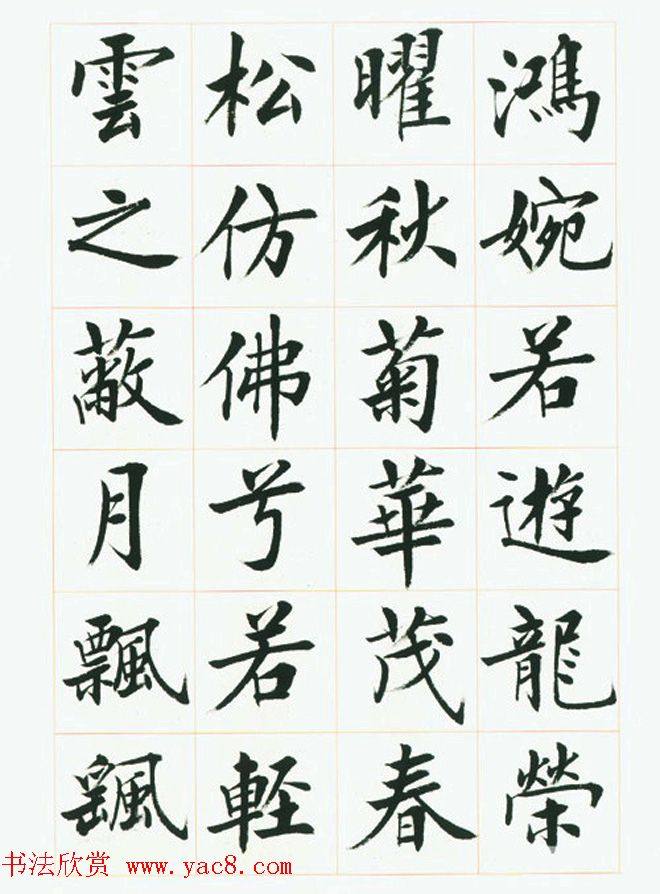 鴻婉若遊龍榮
曜秋菊華茂春
松仿佛兮若軽
雲之蔽月飄颻
书法欣赏 www.yac8.com